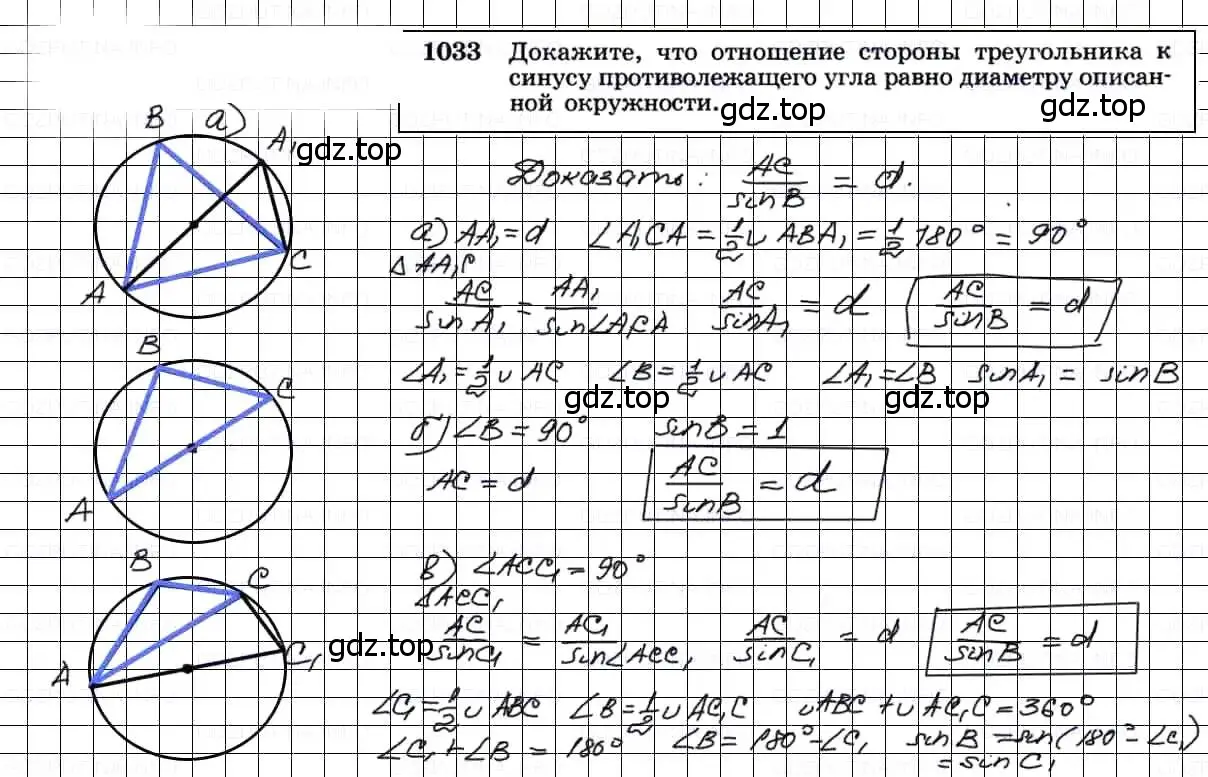 1033 Докажите, что отношение стороны треугольника к
синусу противолежащего угла равно диаметру описан-
ной окружности.
gdz.top gdz.top
B а) A₁
gdz.top
C
A
Доказать: AC/sinB = d.
а) AA₁ = d ∠A₁CA = 1/2 ∪ ABA₁ = 1/2 180° = 90°
△AA₁C
AC/sinA₁ = AA₁/sin∠A₁CA AC/sinA₁ = d AC/sinB = d
∠A₁ = 1/2 ∪ AC ∠B = 1/2 ∪ AC ∠A₁ = ∠B sinA₁ = sinB
gdz.top gdz.top
B
C
A
б) ∠B = 90° sinB = 1
AC = d AC/sinB = d
B C
gdz.top
C₁
A
в) ∠ACC₁ = 90°
△ACC₁
AC/sinC₁ = AC₁/sin∠ACC₁ AC/sinC₁ = d AC/sinB = d
∠C₁ = 1/2 ∪ ABC ∠B = 1/2 ∪ AC₁C ∪ABC + ∪AC₁C = 360°
∠C₁ + ∠B = 180° ∠B = 180° - ∠C₁ sinB = sin(180° - ∠C₁)
= sinC₁